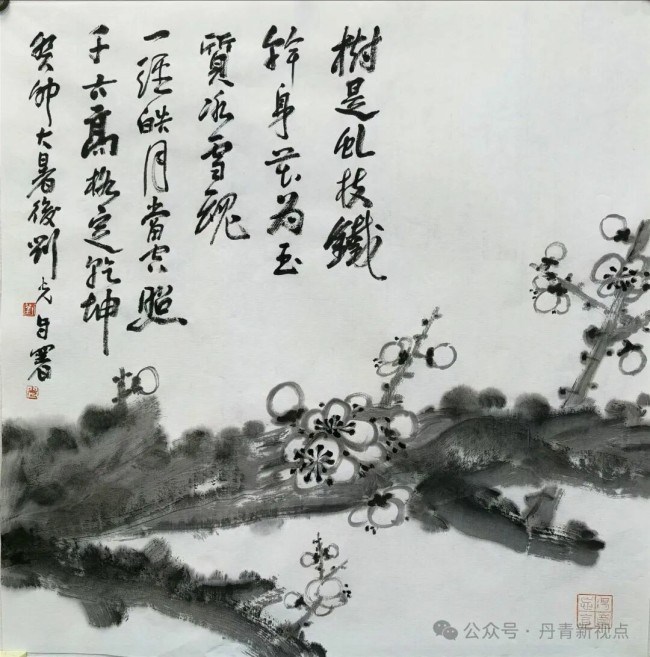 樹是虬枝鐵
幹身花为玉
質冰雪魂
一經皓月當空照
千古高格定乾坤
癸卯大暑後劉光自署
公众号·丹青新视点